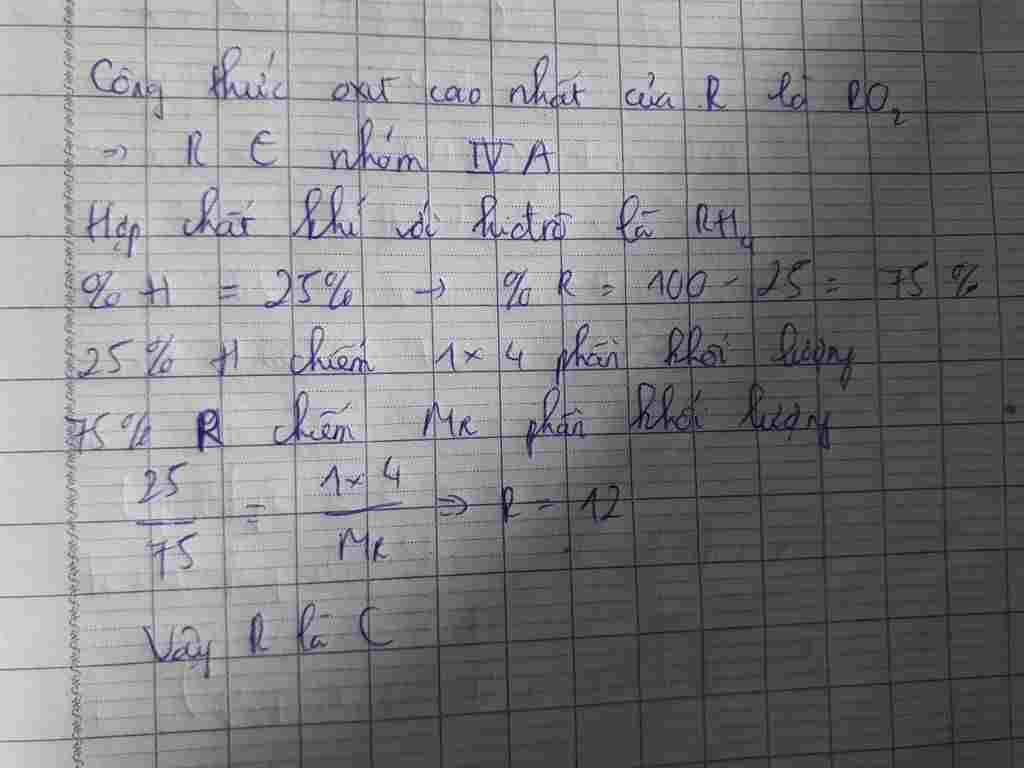 Công thức oxit cao nhất của R là RO₂
=> R ∈ nhóm IV A
Hợp chất khí với hiđrô là RH₄
% H = 25% → % R = 100 - 25 = 75 %
25% H chiếm 1x 4 phần khối lượng
75% R chiếm MR phần khối lượng
25/75 = 1x 4/MR => R = 12
Vậy R là C